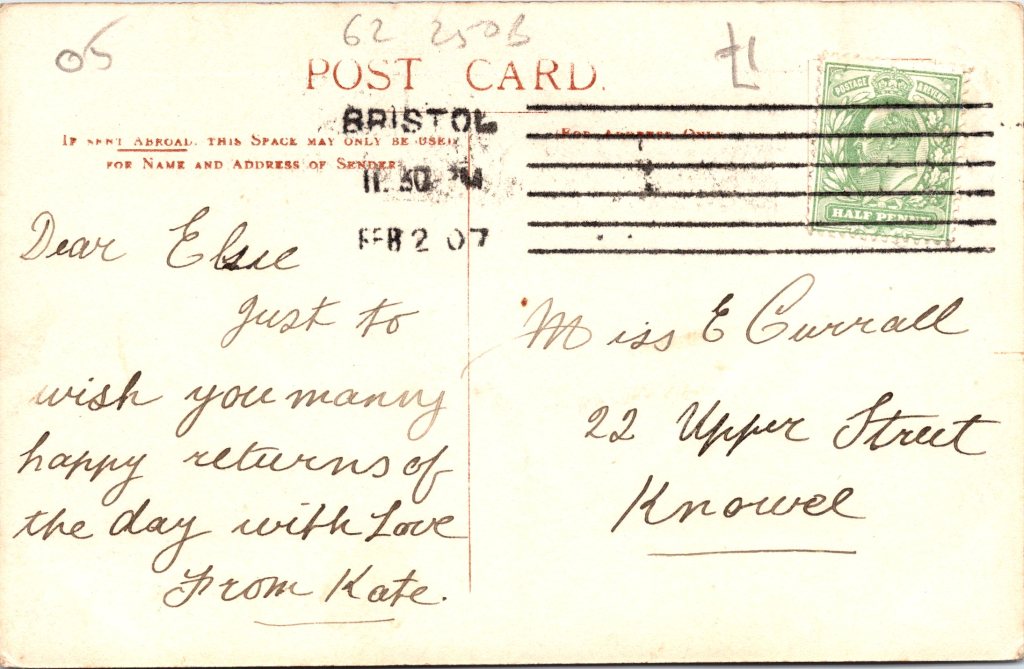 05
62 250B
£1
POST CARD.
IF SENT ABROAD, THIS SPACE MAY ONLY BE USED
FOR NAME AND ADDRESS OF SENDER
FOR ADDRESS ONLY
BRISTOL
11.30 PM
FEB 2 07
POSTAGE & REVENUE
HALF PENNY
Dear Elsie
Just to
wish you manny
happy returns of
the day with Love
From Kate.
Miss E Currall
22 Upper Street
Knowel